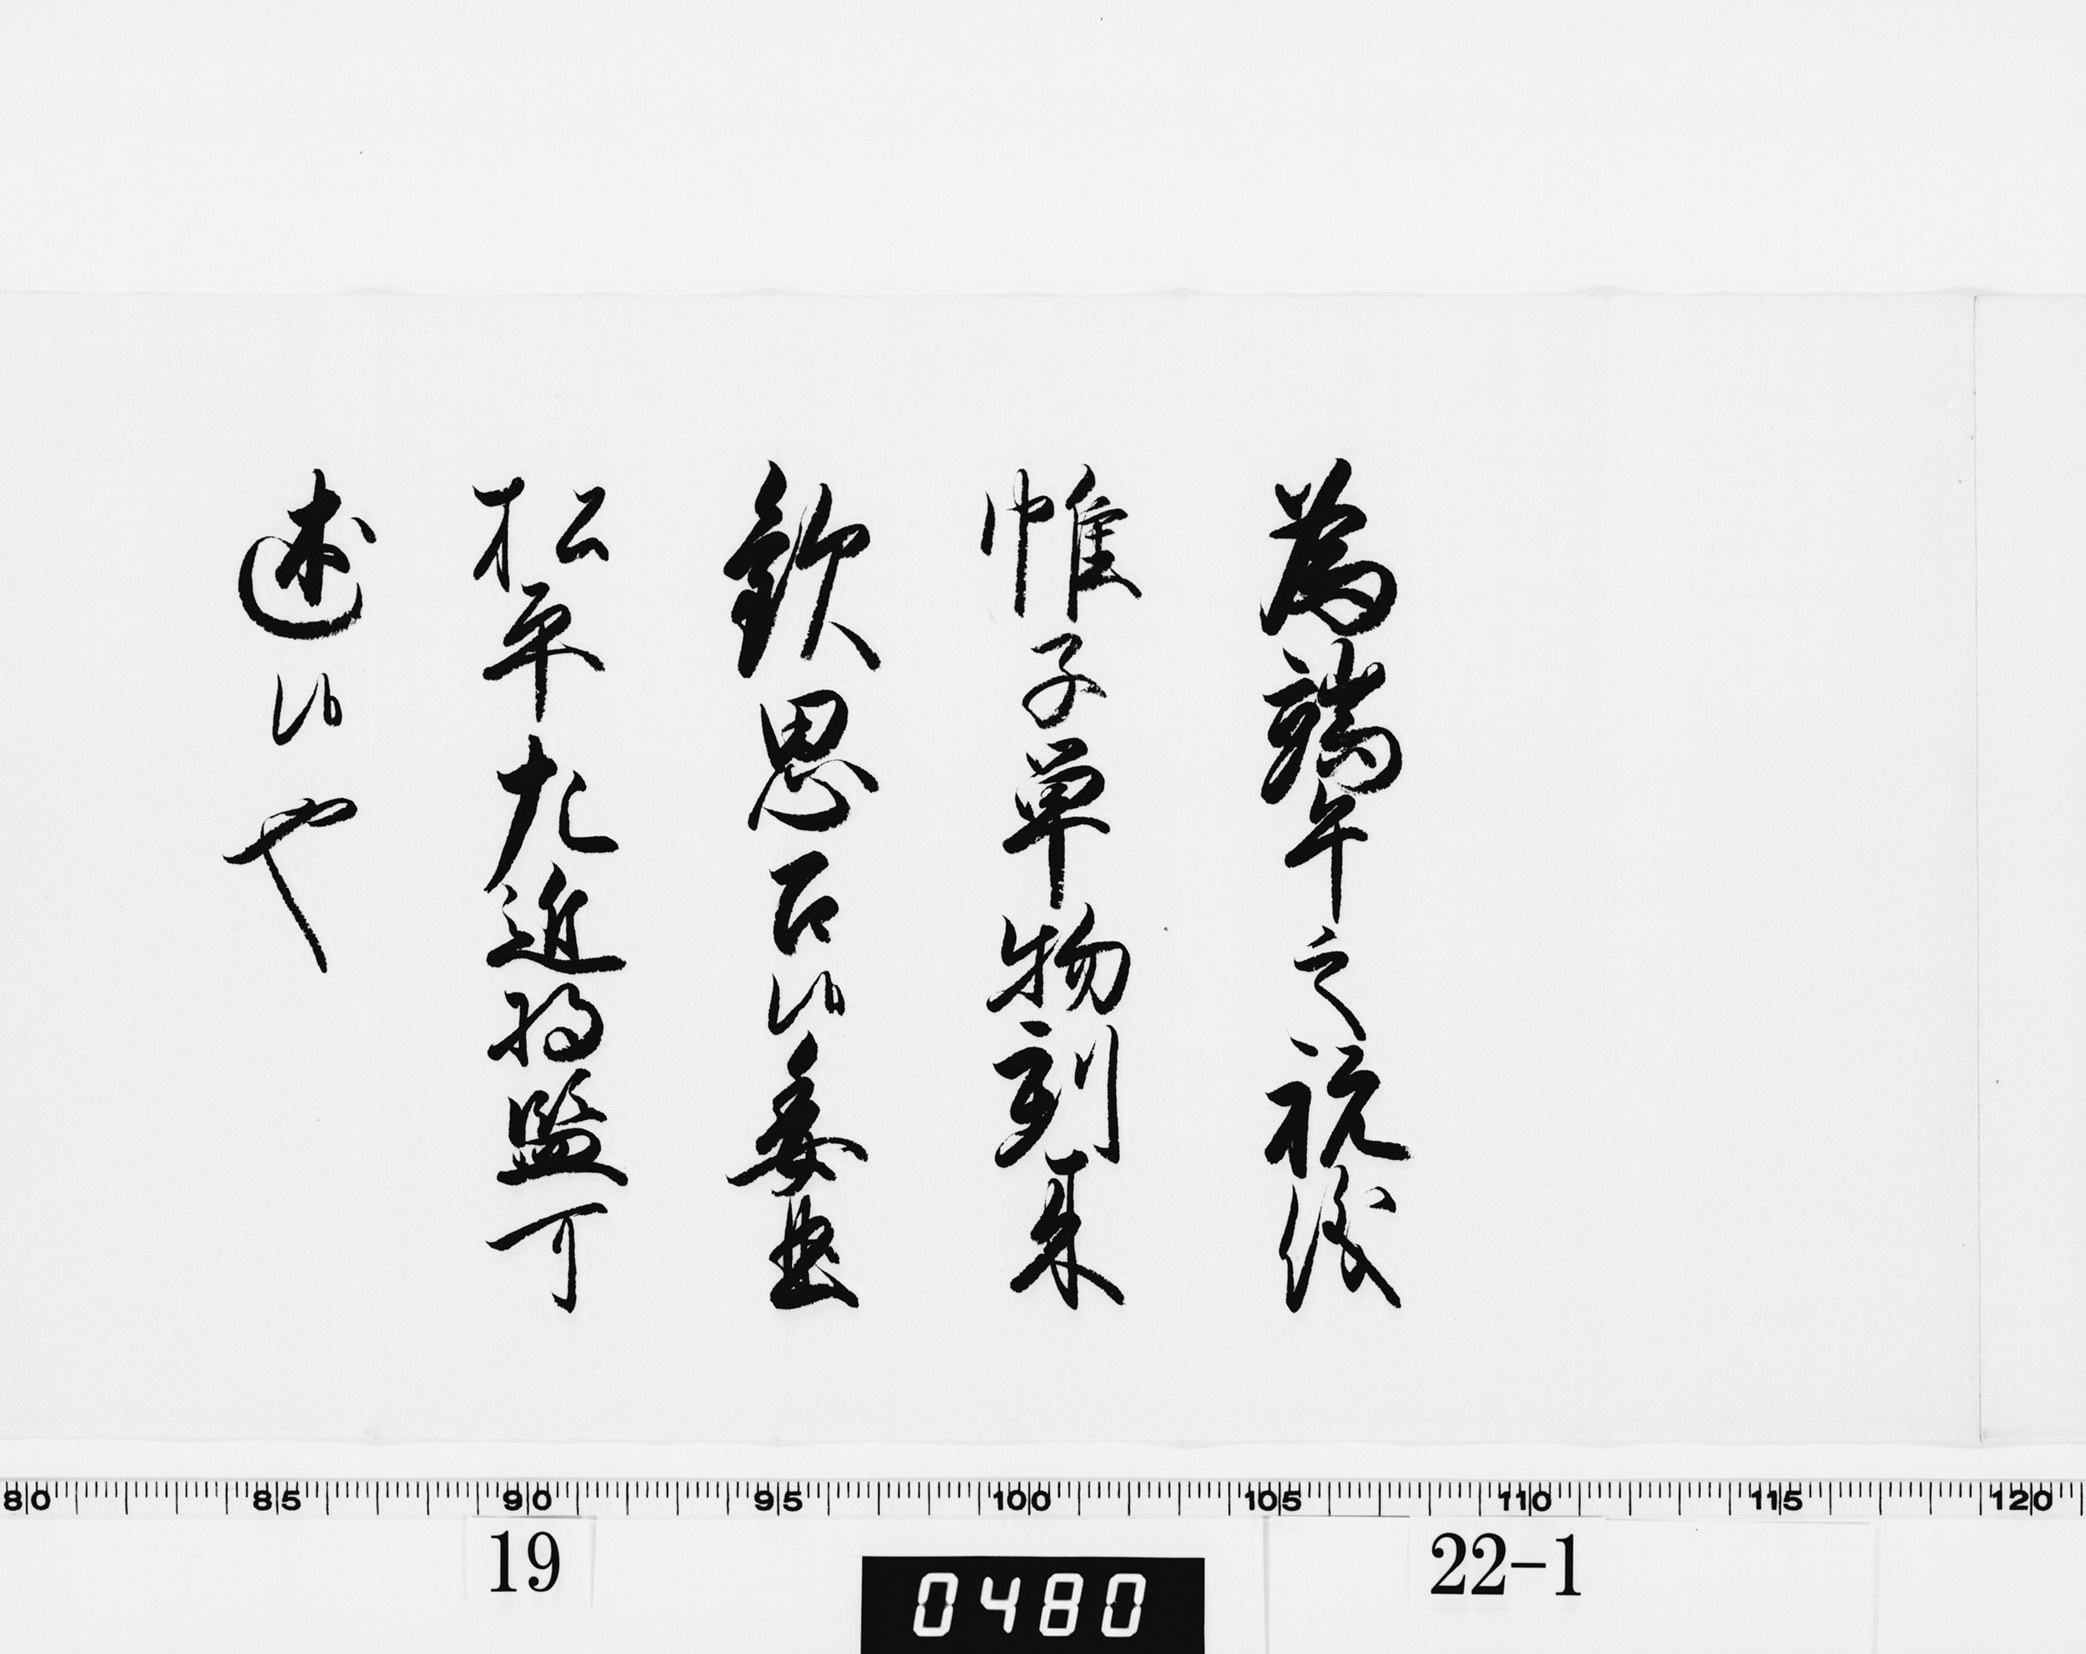 為端午之祝儀
帷子単物到来
歓思召候委曲
松平左近将監可
述候也
80 85 90 95 100 105 110 115 120
19
0480
22-1